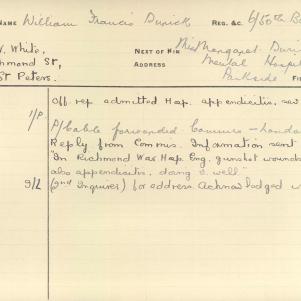 NAME William Francis Dunick REG. &C. 6/50th B
V. White,
chmond St,
St Peters.
NEXT OF KIN Miss Margaret Duni
ADDRESS Mental Hospi
Parkside
Off. rep. admitted Hsp. appendicitis, sev
1/P P/Cable forwonded Commrs - London
Reply from Commrs. Information sent
"In Richmond War Hsp. Eng. gunshot wounds
also appendicitis, doing c. well"
9/2 (2nd Inquirer) for address. Acknowledged